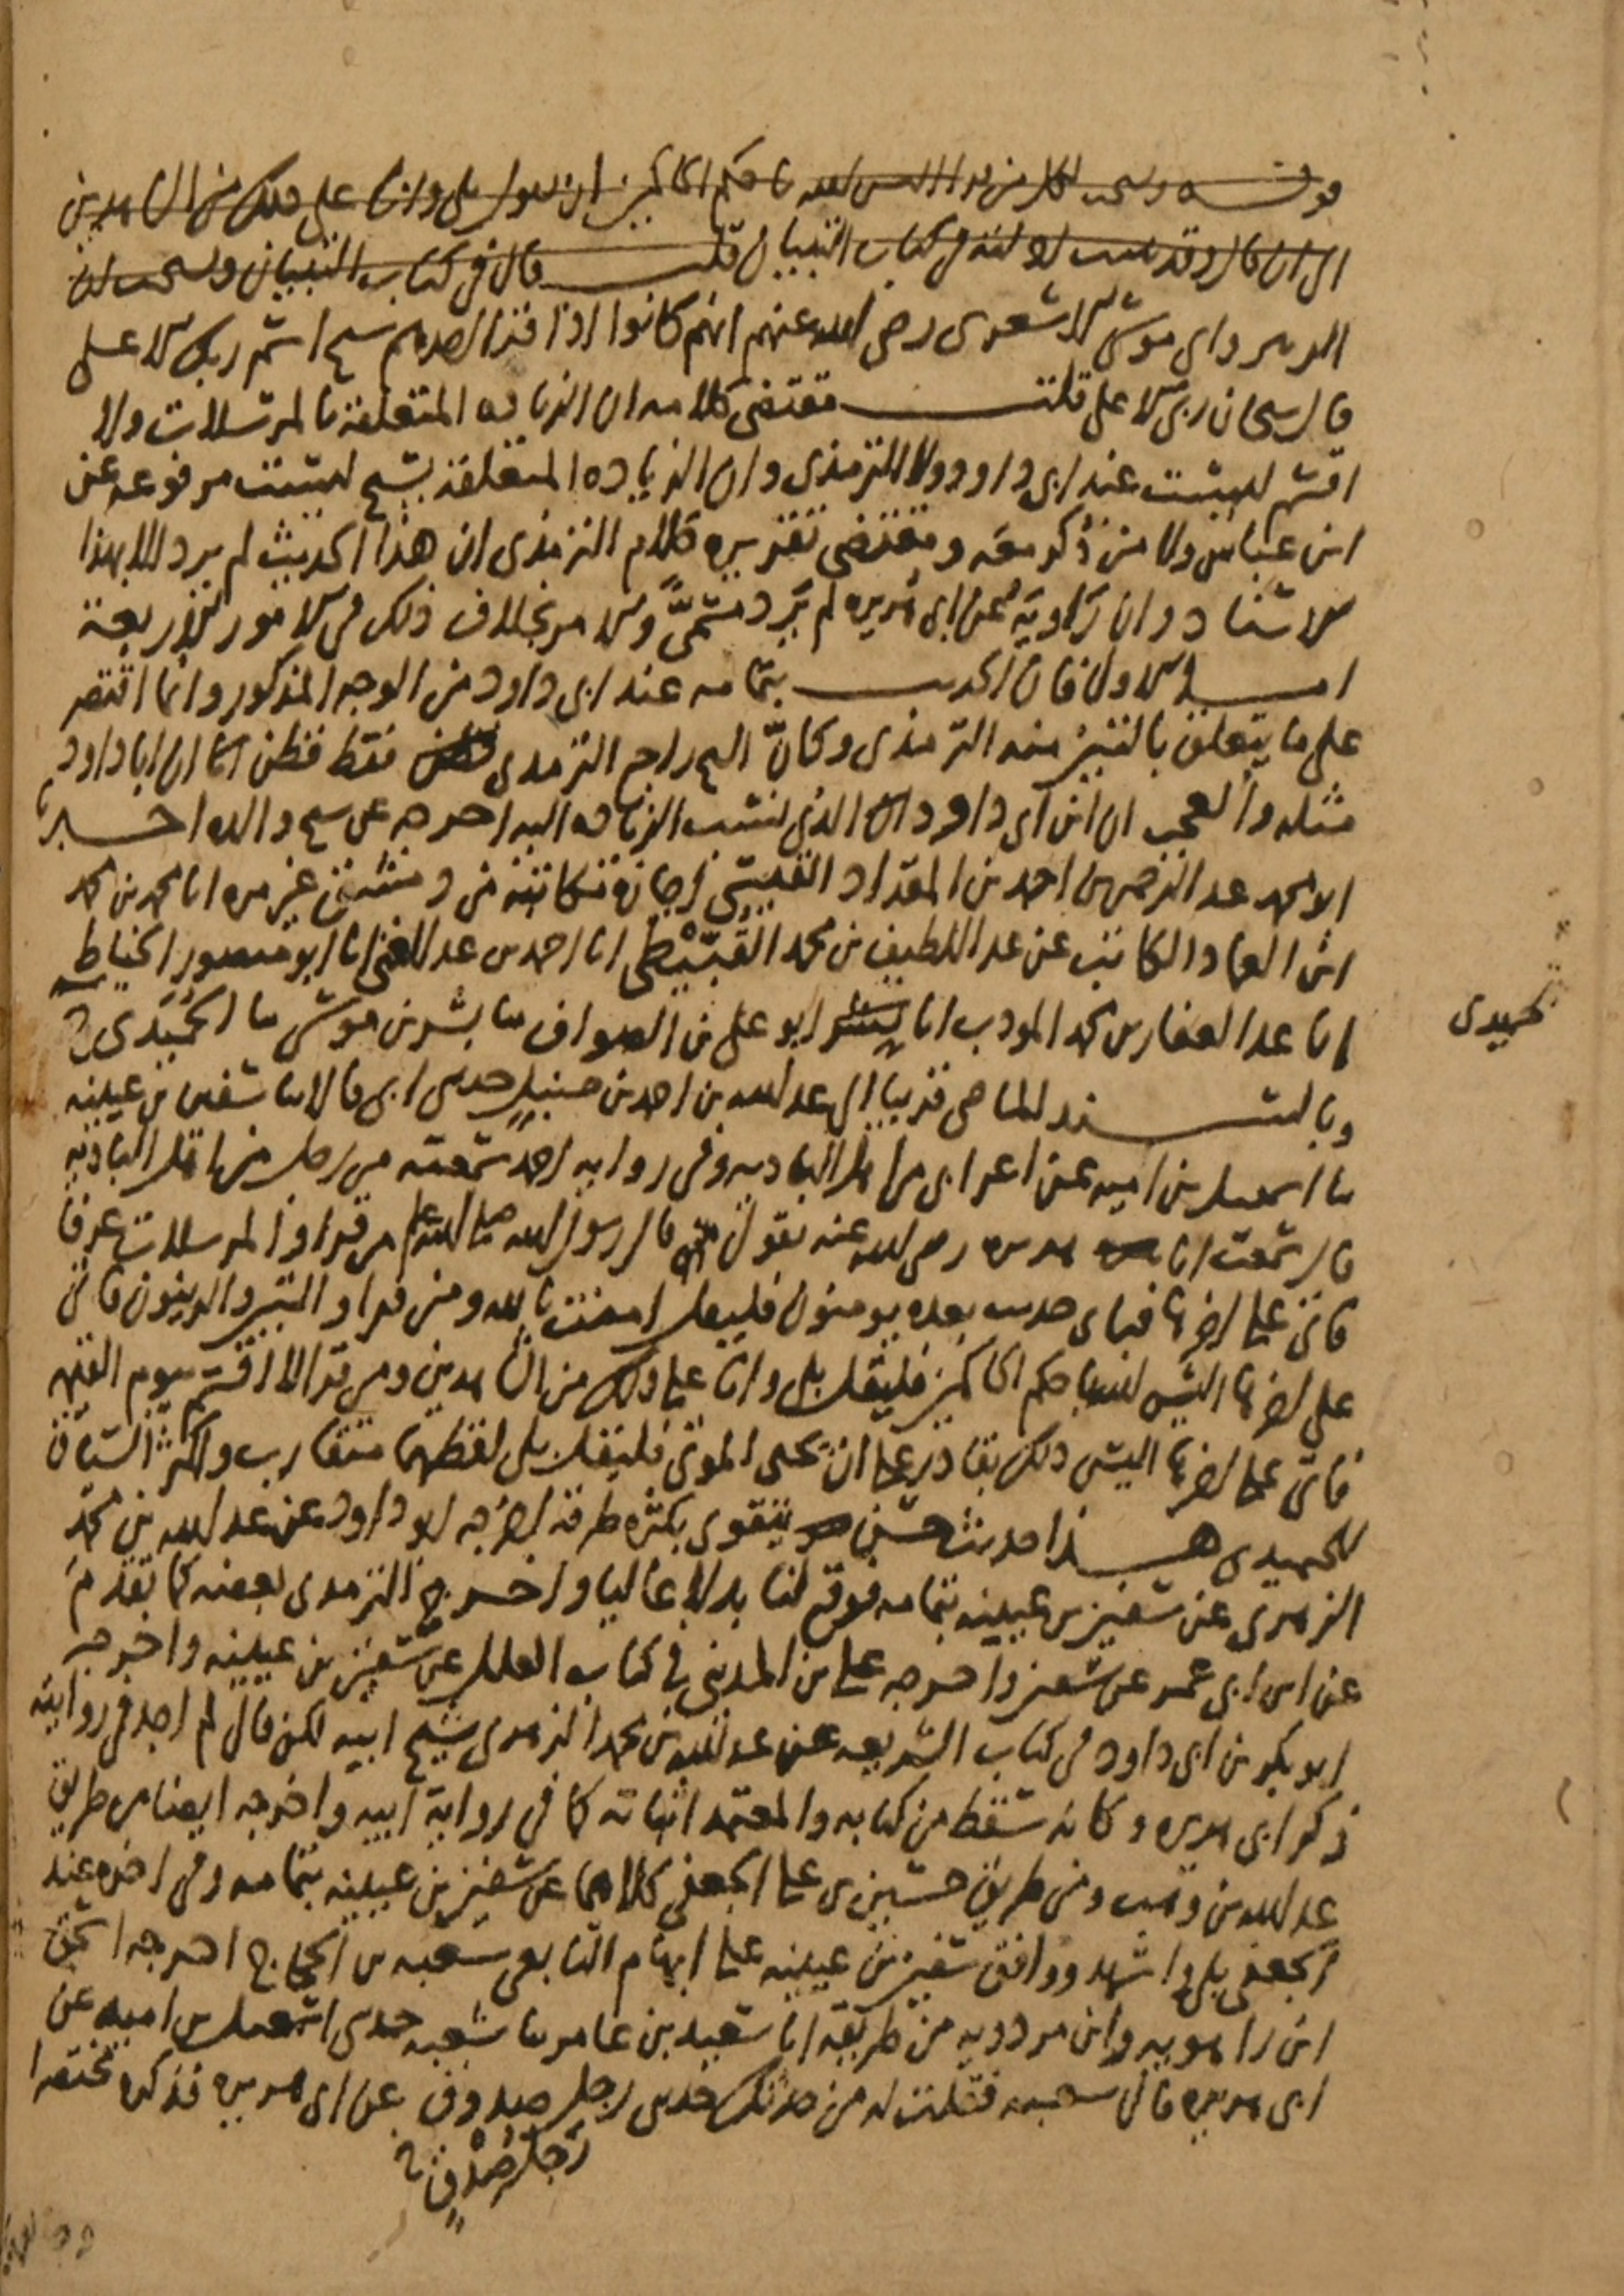 قوله ويستحب لكل من قرا اليس الله باحكم الحاكمين ان يقول بلى وانا على ذلك من الشاهدين
الى ان قال وقد بينت ادلته في كتاب التبيان قلت قال في كتاب التبيان ويستحب ان
الزبير وابي موسى الاشعري رضي الله عنهم انهم كانوا اذا قرا احدهم سبح اسم ربك الاعلى
قال سبحان ربي الاعلى قلت مقتضى كلامه ان الزيادة المتعلقة بالمرسلات ولا
اقسم ليست عند ابي داود ولا الترمذي وان الزيادة المتعلقة بسبح ليست مرفوعة عن
ابن عباس ولا من ذكر معه ومقتضى تقريره كلام الترمذي ان هذا الحديث لم يرد الا بهذا
الاسناد وان راويه عن ابي هريرة لم يرد مسمى والامر بخلاف ذلك في الامور الاربعة
اما الاول فان الحديث بتمامه عند ابي داود من الوجه المذكور وانما اقتصر
على ما يتعلق بالتين منه الترمذي وكان الشيخ راجع الترمذي فقط فظن ان ابا داود
مثله والعجب ان ابن ابي داود الذي نسب الزيادة اليه اخرجه عن شيخ والده اخبرنا
ابو محمد عبد الرحمن بن احمد بن المقداد القيسي اجازة مكاتبة من دمشق غير مرة انا محمد بن محمد
ابن العماد الكاتب عن عبد اللطيف بن محمد القبيطي انا احمد بن عبد الغني انا ابو منصور الخياط
انا عبد الغفار بن محمد المودب انا ابو علي بن الصواف ثنا بشر بن موسى ثنا الحميدي ح
حميدي
وبالسند الماضي قريبا الى عبد الله بن احمد بن حنبل حدثني ابي قالا ثنا سفين بن عيينه
ثنا اسمعيل بن اميه عن اعرابي من اهل البادية وفي رواية احمد سمعته من رجل من اهل البادية
قال سمعت ابا هريرة رضي الله عنه يقول قال رسول الله صلى الله عليه وسلم من قرا والمرسلات عرفا
فاتى على اخرها فباي حديث بعده يومنون فليقل امنت بالله ومن قرا والتين والزيتون فاتى
على اخرها اليس الله باحكم الحاكمين فليقل بلى وانا على ذلك من الشاهدين ومن قرا لا اقسم بيوم القيمه
فاتى على اخرها اليس ذلك بقادر على ان يحيي الموتى فليقل بلى لفظهما متقارب واكثر السياق
للحميدي هذا حديث حسن يتقوى بكثرة طرقه اخرجه ابو داود عن عبد الله بن محمد
الزهري عن سفين بن عيينه بتمامه فوقع لنا بدلا عاليا واخرج الترمذي بعضه كما تقدم
عن ابن ابي عمر عن سفين واخرجه علي بن المديني في كتاب العلل عن سفين بن عيينه واخرجه
ابو بكر بن ابي داود في كتاب الشريعه عن عبد الله بن محمد الزهري شيخ ابيه لكن قال لم اجد في روايته
ذكر ابي هريرة وكانه سقط من كتابه والمعتمد اثباته كما في رواية ابيه واخرجه ايضا من طريق
عبد الله بن وهب ومن طريق حسين بن علي الجعفي كلاهما عن سفين بن عيينه بتمامه وفي اخره عند
الجعفي بلى واشهد ووافق سفين بن عيينه على ابهام التابعي شعبه بن الحجاج اخرجه اسحق
ابن راهويه وابن مردويه من طريقه انا سعيد بن عامر ثنا شعبه حدثني اسمعيل بن اميه عن
ابي هريرة قال شعبه فقلت له من حدثك حدثني رجل صدوق عن ابي هريرة فذكره مختصرا
رجل صدق